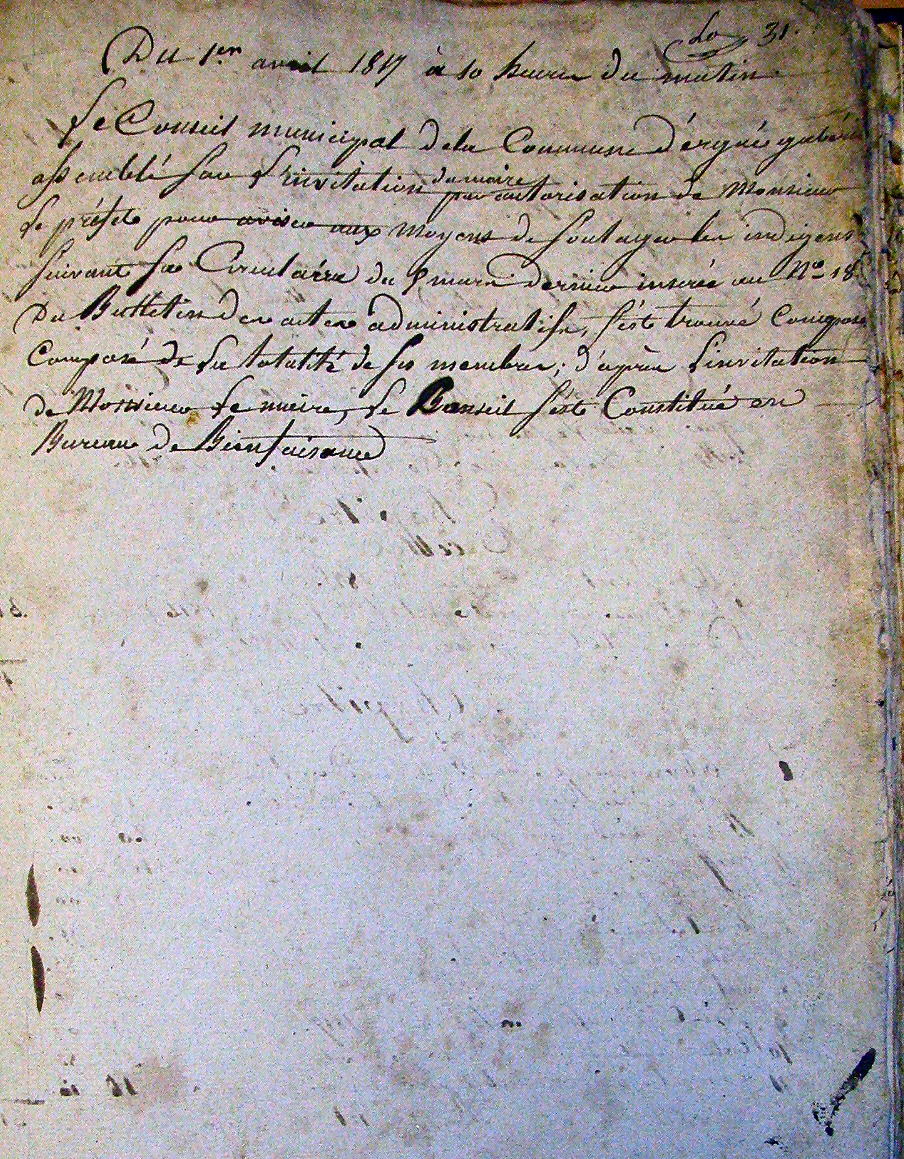 31.
Du 1er avril 1817 à 10 heures du matin
Le Conseil municipal dela Commune d'ergué gabéric
assemblé sur l'invitation du maire par autorisation de Monsieur
le préfet pour aviser aux moyens de soulager les indigens
suivant sa Circulaire du 8 mars dernier inserée au No 18
Du Bulletin des actes administratifs, s'est trouvé composé
Composé de la totalité de ses membres; d'après l'invitation
de Monsieur le maire, le Conseil s'est Constitué en
Bureau de Bienfaisance